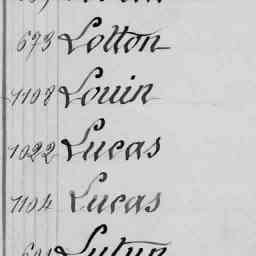 673 Lotton
1108 Louin
1022 Lucas
1104 Lucas